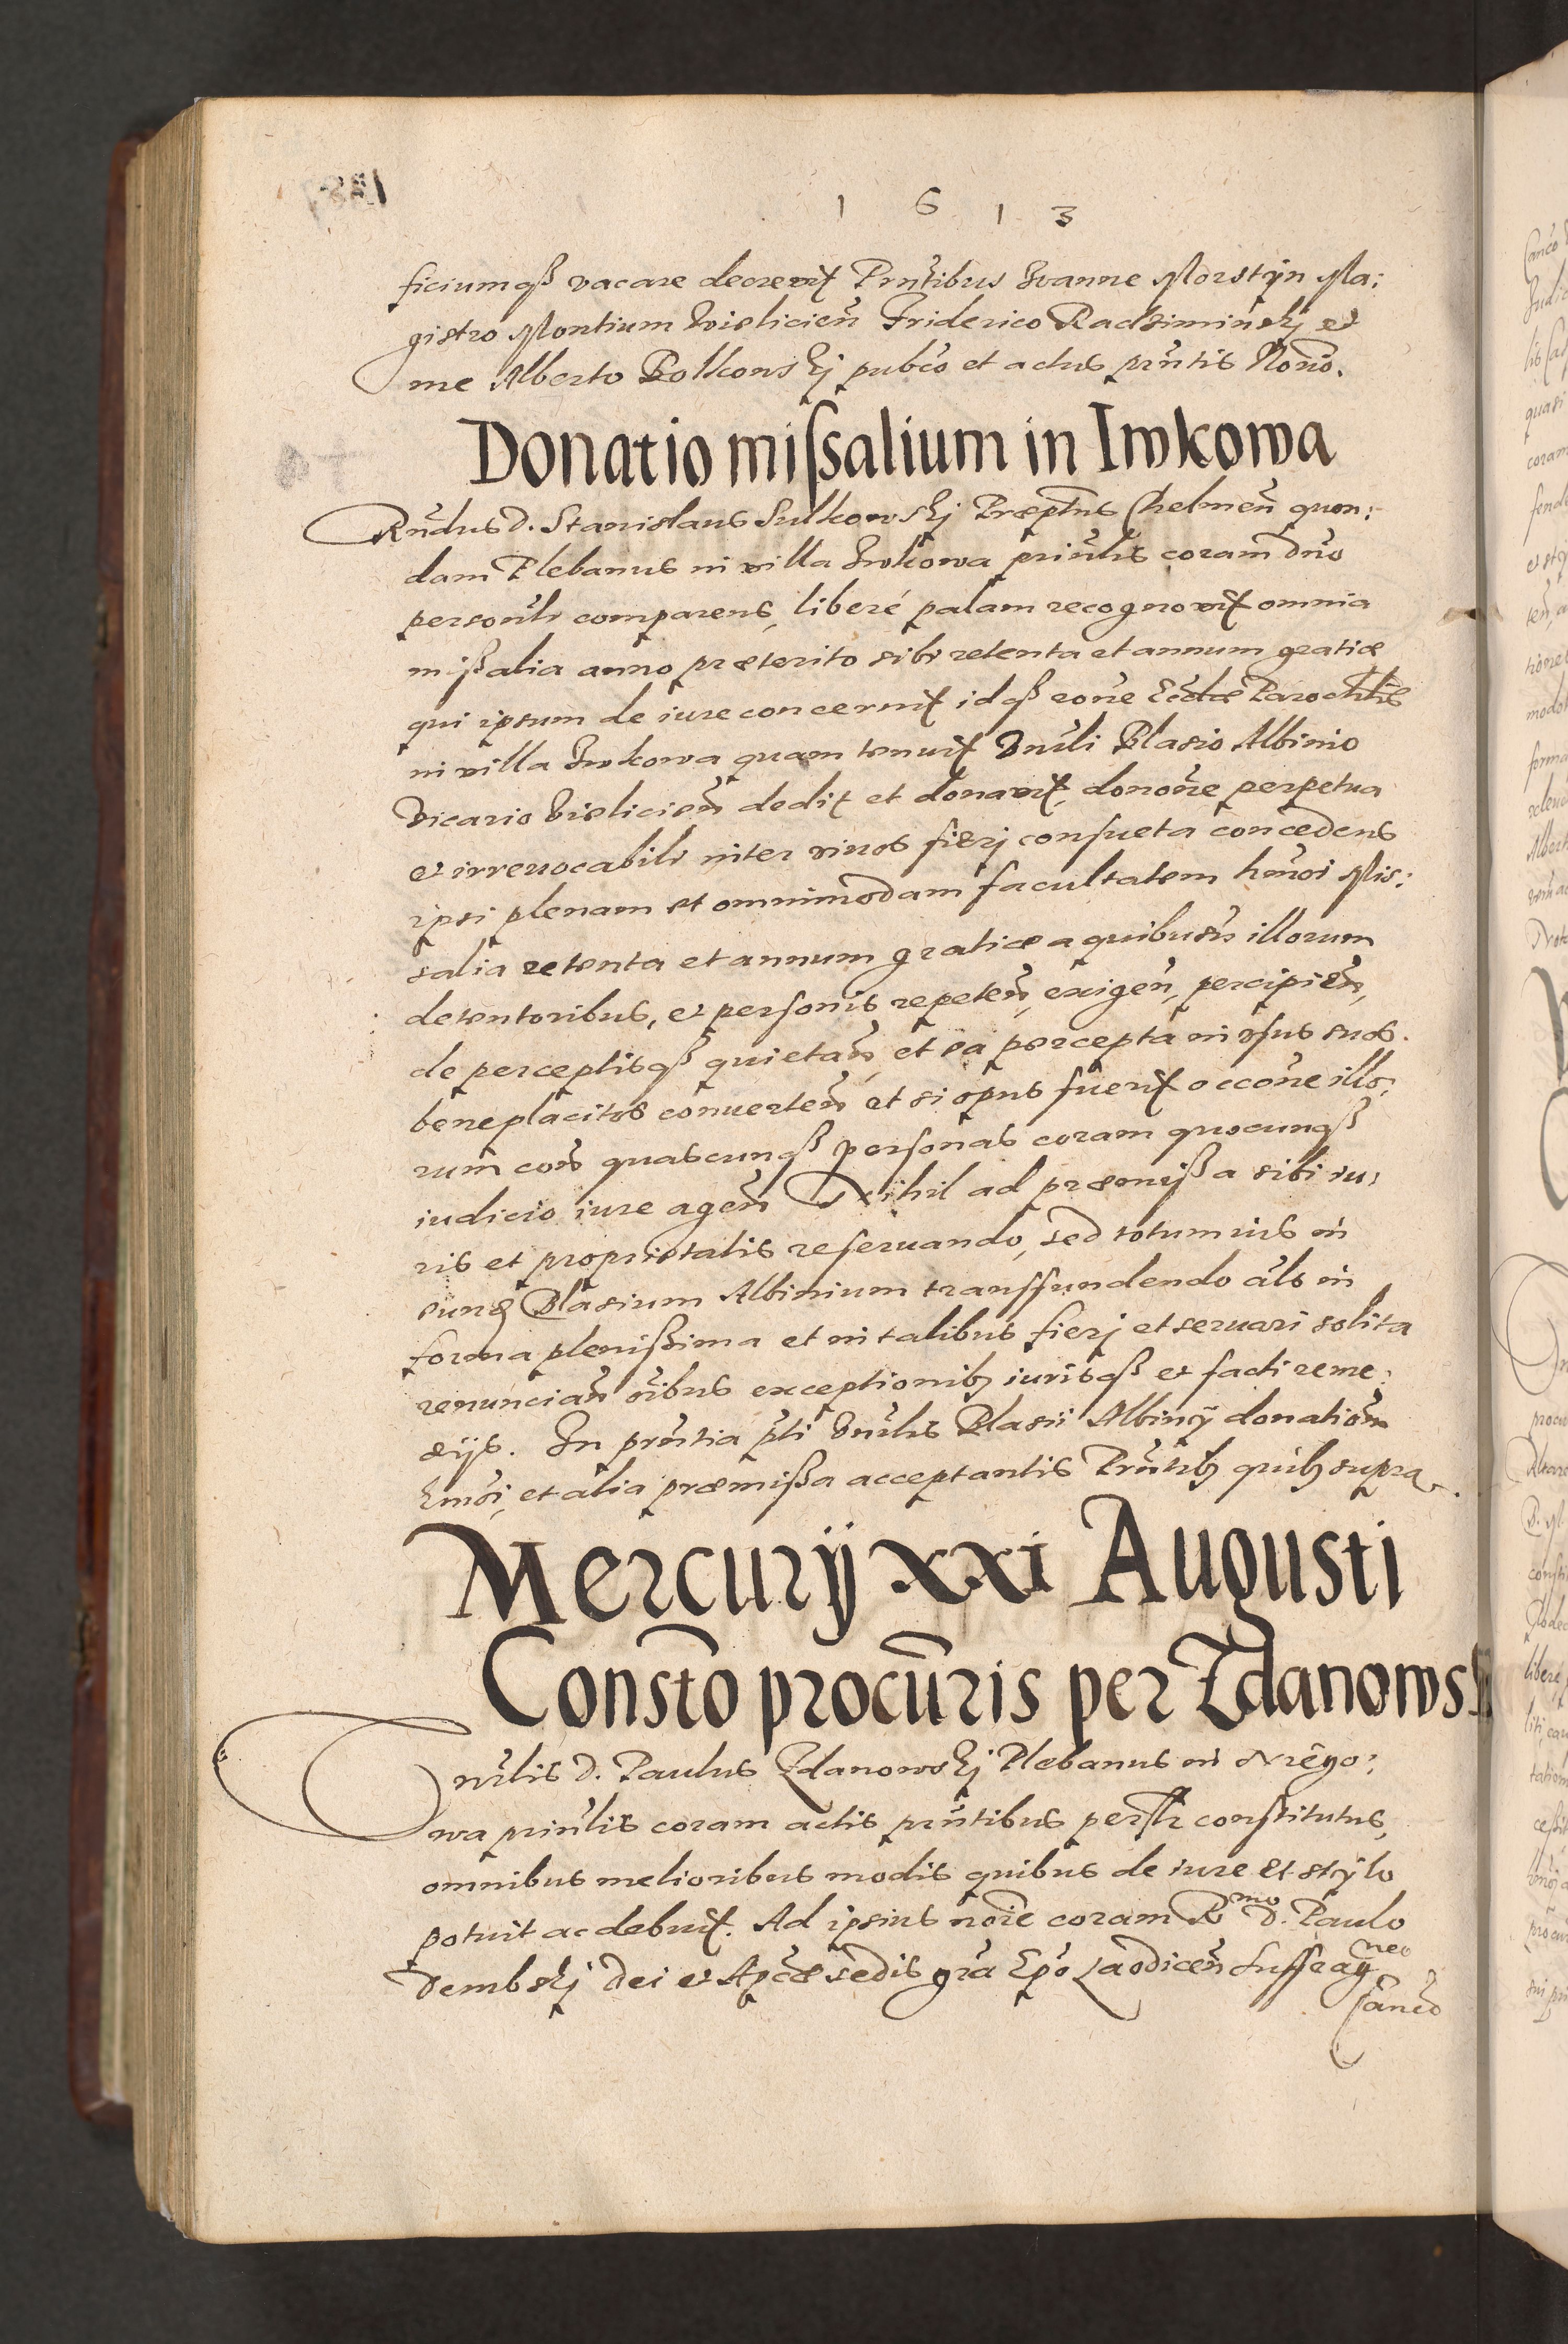 1 6 1 3
ficiumqß vacare decrevit Pnt̃ibus Ioanne Morstÿn Ma:
gistro Montium Vielicień Friderico Raciiminski et
me Alberto Bolkowskj pubc̃o et actus pñtis Notrõ.
Donatio missalium in Iwkowa
Rñdus D. Stanislaus Sulkowskj Præptũs Chelmeñ quon:
dam Plebanus in villa Iwkowa priñlis coram Dño
persoñlr comparens, liberé palam recognovit omnia
mißalia anno præterito sibi retenta et annum gratiæ
qui ipsum de iure concernit idqß rõne Ecclæ Parochlis
in villa Iwkowa quam tenuit Dnil̃i Blasio Albinio
Vicario Vieliceñ dedit et donavit, donõne perpetua
et irreuocabili inter viuos fierj consueta concedens
ipsi plenam et omnimodam facultatem hm̃oi Mis:
salia retenta et annum gratiæ a quibusvis illorum
detentoribus, et personis repeteñ, exigeñ, percipieñ,
de perceptisqß quietañ, et ea percepta in vsus suos
beneplacitos conuerteñ et si opus fuerit occõne illo:
rum coñ quascunqß personas coram quocunqß
iudicio iure ageñ Nihil ad præmißa sibi iu:
ris et proprietatis reseruando, sed totum ius in
eund Blasium Albinium transfundendo als in
forma plenißima et in talibus fierj et seruari solita
renunciañ oĩbus exceptionib iurisqß et facti reme:
dijs. In prñtia pt̃i Dnilis Blasii Albinij donationem
hmõi, et alia præmißa acceptantis Prñtib quib supra.
Mercurij xxi Augusti
Constõ procũris per Zdanows
nilis D. Paulus Zdanowskj Plebanus in
wa priñlis coram actis prñtibus perslr constitutus,
omnibus melioribus modis quibus de iure et stÿlo
potuit ac debuit. Ad ipsius noĩe coram Rmo D. Paulo
Dembskj Dei et Apcæ sedis gr̃a Epõ Laodiceñ Suffragneo
Cancõ